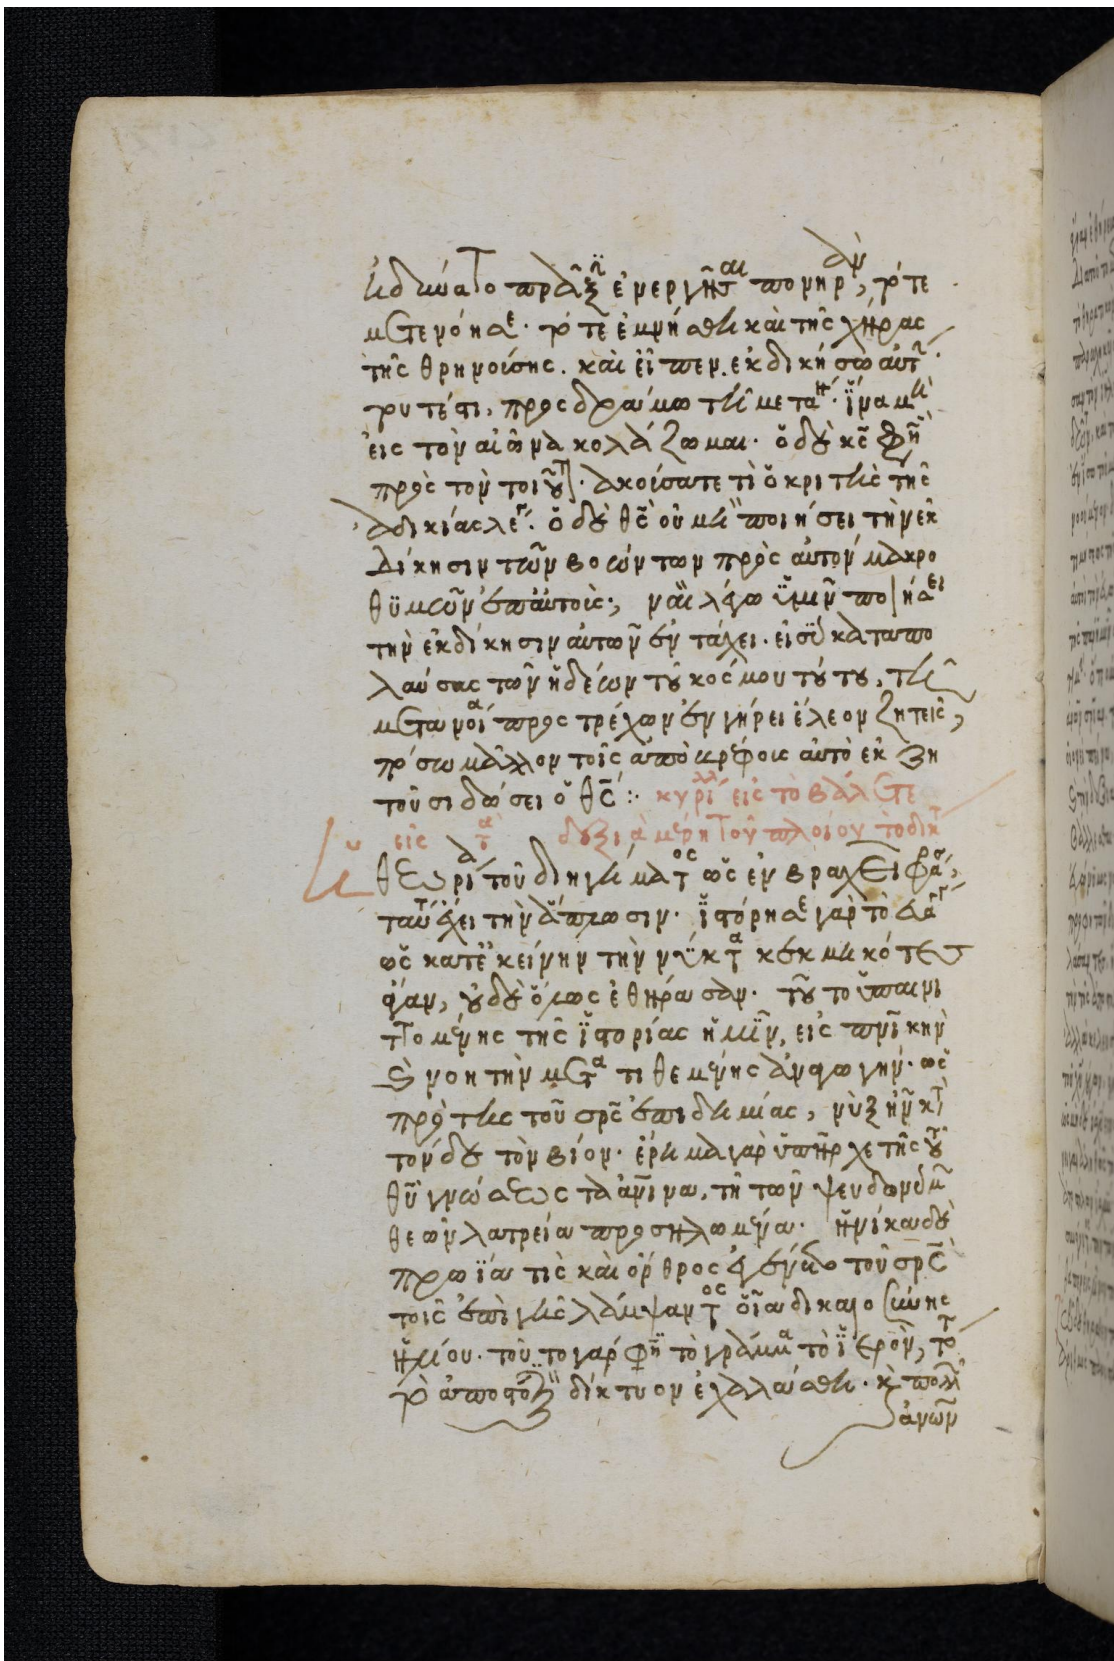 ἠδύνατο πράξιν ἐνεργῆσαι πονηρὰν, τότε
μετενόησε· τότε ἐμνήσθη καὶ τῆς χήρας
τῆς θρηνοίσης. καὶ εἶπεν. ἐκδικήσω αὐτ
εἰς τὸν αἰῶνα κολάζωμαι. ὁ δὲ κς φη
πρὸς τὸν τοιοῦτον. ἀκοίσατε τί ὁ κριτὴς τῆς
ἀδικίας λέγει. ὁ δὲ θς οὐ μὴ ποιήσει τὴν ἐκ
δίκησιν τῶν βοώντων πρὸς αὐτὸν μακρο
θυμῶν ἐπ' αὐτοῖς; ναὶ λέγω ὑμῖν ποιήσει
τὴν ἐκδίκησιν αὐτῶν ἐν τάχει. εἰ σὺ καταπο
λαύσας τῶν ἡδέων τοῦ κόσμου τούτου, τῇ
μετανοίᾳ προστρέχων ἐν γήρει ἔλεον ζητεῖς,
πόσω μᾶλλον τοῖς ἀπὸ βρέφους αὐτὸ ἐκζη
τοῦσι δώσει ὁ θς :· κυρίλλ εἰς τὸ βάλετε
εἰς τὰ δεξιὰ μέρη τοῦ πλοίου τὸ δίκτ
ἡ θεωρία τοῦ διηγήματος ὡς ἐν βραχεῖ φρά,
ταύτ ἔχει τὴν ἅπλωσιν. ἱστόρησε γὰρ τὸ
ὡς κατ' ἐκείνην τὴν νύκτα κεκμηκότες
ἦσαν, οὐδὲ ὅλως ἐθήρασαν. τοῦτο ὑπαινι
ττομένης τῆς ἱστορίας ἡμῖν, εἰς πνικὴν
ἐννοη τὴν μετατιθεμένης ἀναγωγήν. ὡς
πρὸ τῆς τοῦ σρς ἐπιδημίας, νὺξ ἦν κ
τόνδε τὸν βίον. ἔρημα γὰρ ὑπῆρχε τῆς τοῦ
θυ γνώσεως τὰ ἀνινα, τῇ τῶν ψευδωνύμ
θεῶν λατρεία προσηλωμένα. ἡνίκα δὲ
πρωΐα τις καὶ ὄρθρος ἐγένετο τοῦ σρς
τοῖς ἐπὶ γῆς λάμψαντος οἷα δικαιοσύνης
ἡλίου. τοῦτο γὰρ φη τὸ γράμμα τὸ ἱερόν, τὸ
τὸ ἀποστόλ δίκτυον ἐχαλάσθη. κ πολλ
ἀνων